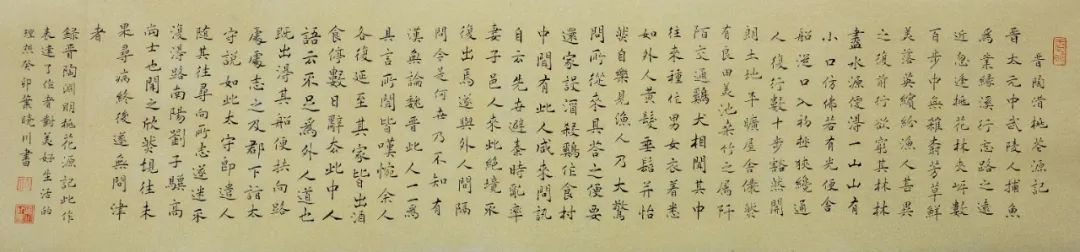 晋陶潜桃花源記
晋太元中武陵人捕魚
為業緣溪行忘路之遠
近忽逢桃花林夾岸數
百步中無雜樹芳草鮮
美落英繽紛漁人甚異
之復前行欲窮其林林
盡水源便得一山山有
小口仿佛若有光便舍
船從口入初極狹纔通
人復行數十步豁然開
朗土地平曠屋舍儼然
有良田美池桑竹之属阡
陌交通鷄犬相聞其中
往来種作男女衣着悉
如外人黃髮垂髫并怡
然自樂見漁人乃大驚
問所從来具答之便要
還家設酒殺鷄作食村
中聞有此人咸来問訊
自云先世避秦時亂率
妻子邑人来此絕境不
復出焉遂與外人間隔
問今是何世乃不知有
漢無論魏晋此人一一為
具言所聞皆嘆惋余人
各復延至其家皆出酒
食停數日辭去此中人
語云不足為外人道也
既出得其船便扶向路
處處志之及郡下詣太
守說如此太守即遣人
隨其往尋向所志遂迷不
復得路南陽劉子驥高
尚士也聞之欣然規往未
果尋病終後遂無問津
者
錄晋陶淵明桃花源記此作
表達了作者對美好生活的
理想癸卯葉曉川書